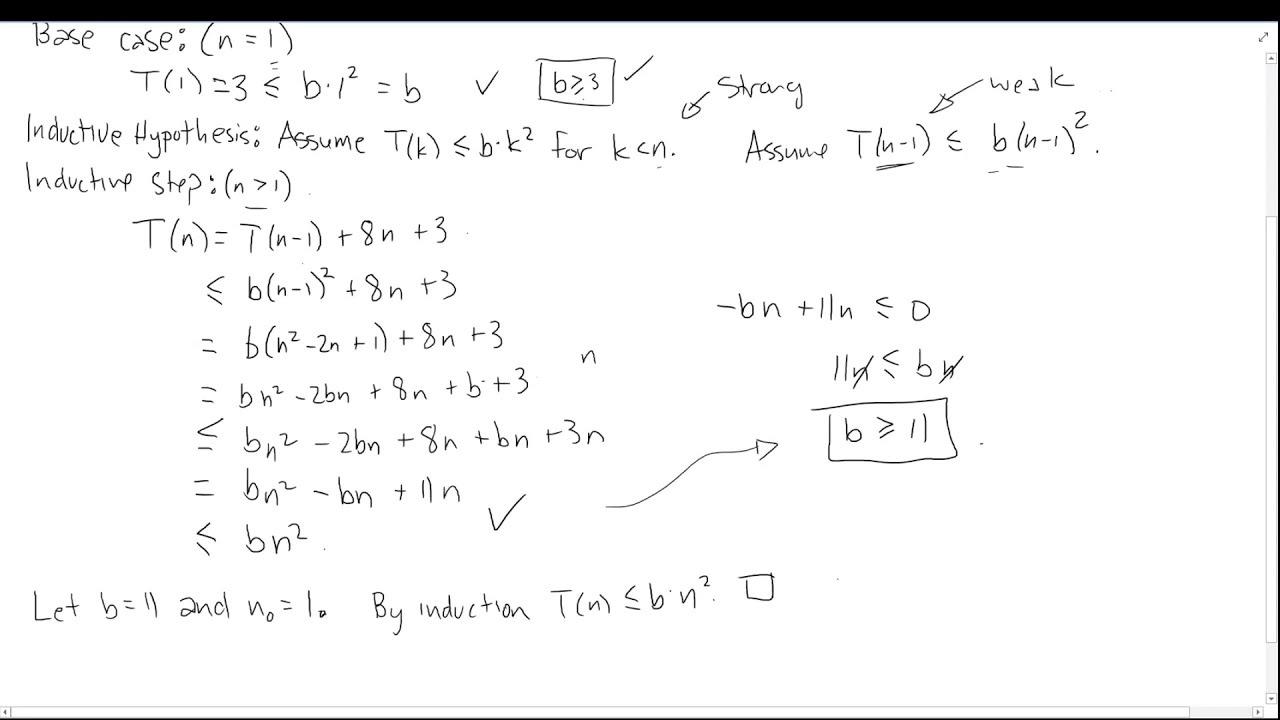 Base case: (n = 1)
T(1) = 3 ≤ b·1² = b ✓ b ≥ 3 ✓
Strong
weak
Inductive Hypothesis: Assume T(k) ≤ b·k² for k<n. Assume T(n-1) ≤ b(n-1)².
Inductive Step: (n > 1)
T(n) = T(n-1) + 8n + 3
≤ b(n-1)² + 8n + 3
= b(n² - 2n + 1) + 8n + 3
n
= bn² - 2bn + 8n + b + 3
≤ bn² - 2bn + 8n + bn + 3n
= bn² - bn + 11n ✓
≤ bn².
-bn + 11n ≤ 0
11n ≤ bn
b ≥ 11
Let b = 11 and n₀ = 1. By induction T(n) ≤ b·n². □